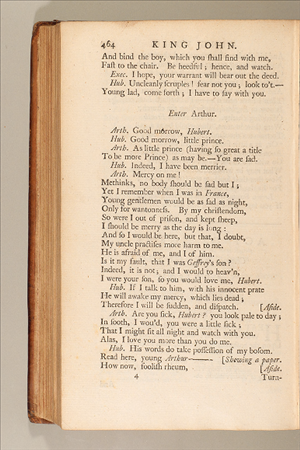 464 KING JOHN.
And bind the boy, which you ſhall find with me,
Faſt to the chair. Be heedful; hence, and watch.
Exec. I hope, your warrant will bear out the deed.
Hub. Uncleanly ſcruples! fear not you; look to't.—
Young lad, come forth; I have to ſay with you.
Enter Arthur.
Arth. Good morrow, Hubert.
Hub. Good morrow, little prince.
Arth. As little prince (having ſo great a title
To be more Prince) as may be.—You are ſad.
Hub. Indeed, I have been merrier.
Arth. Mercy on me!
Methinks, no body ſhould be ſad but I;
Yet I remember when I was in France,
Young gentlemen would be as ſad as night,
Only for wantonneſs. By my chriſtendom,
So were I out of priſon, and kept ſheep,
I ſhould be merry as the day is long:
And ſo I would be here, but that, I doubt,
My uncle practiſes more harm to me.
He is afraid of me, and I of him.
Is it my fault, that I was Geffrey's ſon?
Indeed, it is not; and I would to heav'n,
I were your ſon, ſo you would love me, Hubert.
Hub. If I talk to him, with his innocent prate
He will awake my mercy, which lies dead;
Therefore I will be ſudden, and diſpatch. [Aſide.
Arth. Are you ſick, Hubert? you look pale to day;
In ſooth, I wou'd, you were a little ſick;
That I might ſit all night and watch with you.
Alas, I love you more than you do me.
Hub. His words do take poſſeſſion of my boſom.
Read here, young Arthur—— [Showing a paper.
How now, fooliſh rheum, [Aſide.
4 Turn-